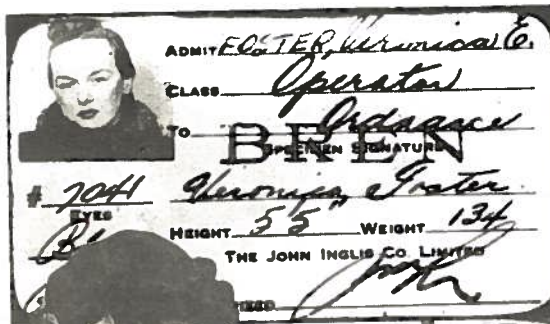 ADMIT FOSTER, Veronica E.
CLASS Operator
TO Ordnance
BREN
SPECIMEN SIGNATURE
# 7041 Veronica Foster
EYES
HEIGHT 5'5" WEIGHT 134
THE JOHN INGLIS CO. LIMITED